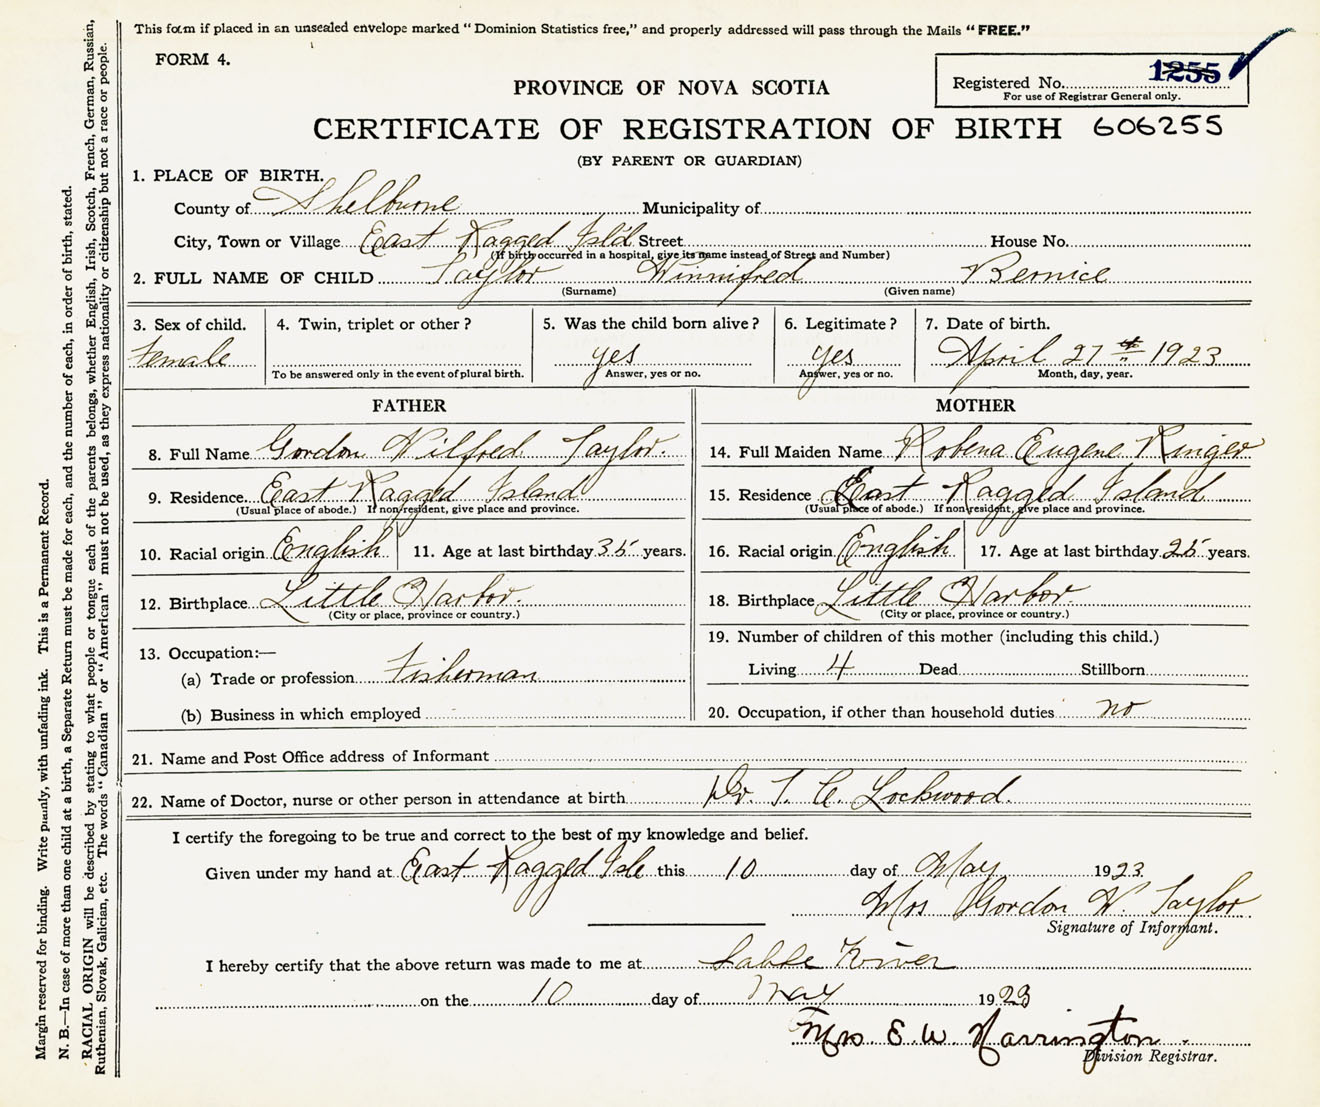 This form if placed in an unsealed envelope marked "Dominion Statistics free," and properly addressed will pass through the Mails "FREE."
FORM 4.
Registered No. 1255
For use of Registrar General only.
PROVINCE OF NOVA SCOTIA
CERTIFICATE OF REGISTRATION OF BIRTH 606255
(BY PARENT OR GUARDIAN)
1. PLACE OF BIRTH.
County of Shelburne Municipality of
City, Town or Village East Ragged Isl'd Street House No.
(If birth occurred in a hospital, give its name instead of Street and Number)
2. FULL NAME OF CHILD Taylor Winnifred Bernice
(Surname) (Given name)
3. Sex of child. 4. Twin, triplet or other? 5. Was the child born alive? 6. Legitimate? 7. Date of birth.
Female yes yes April 27th 1923
To be answered only in the event of plural birth. Answer, yes or no. Answer, yes or no. Month, day, year.
FATHER
8. Full Name Gordon Wilfred Taylor.
9. Residence East Ragged Island
(Usual place of abode.) If non-resident, give place and province.
10. Racial origin English 11. Age at last birthday 35 years.
12. Birthplace Little Harbor.
(City or place, province or country.)
13. Occupation:—
(a) Trade or profession Fisherman
(b) Business in which employed
MOTHER
14. Full Maiden Name Robena Eugene Ringer
15. Residence East Ragged Island
(Usual place of abode.) If non-resident, give place and province.
16. Racial origin English 17. Age at last birthday 25 years.
18. Birthplace Little Harbor.
(City or place, province or country.)
19. Number of children of this mother (including this child.)
Living 4 Dead Stillborn
20. Occupation, if other than household duties no
21. Name and Post Office address of Informant
22. Name of Doctor, nurse or other person in attendance at birth Dr. T. C. Lockwood.
I certify the foregoing to be true and correct to the best of my knowledge and belief.
Given under my hand at East Ragged Isle this 10 day of May 1923
Mrs Gordon W. Taylor
Signature of Informant.
I hereby certify that the above return was made to me at Sable River
on the 10 day of May 1923
Mrs. E. W. Harrington.
Division Registrar.
Margin reserved for binding. Write plainly, with unfading ink. This is a Permanent Record.
N. B.—In case of more than one child at a birth, a Separate Return must be made for each, and the number of each, in order of birth, stated.
RACIAL ORIGIN will be described by stating to what people or tongue each of the parents belongs, whether English, Irish, Scotch, French, German, Russian,
Ruthenian, Slovak, Galician, etc. The words "Canadian" or "American" must not be used, as they express nationality or citizenship but not a race or people.